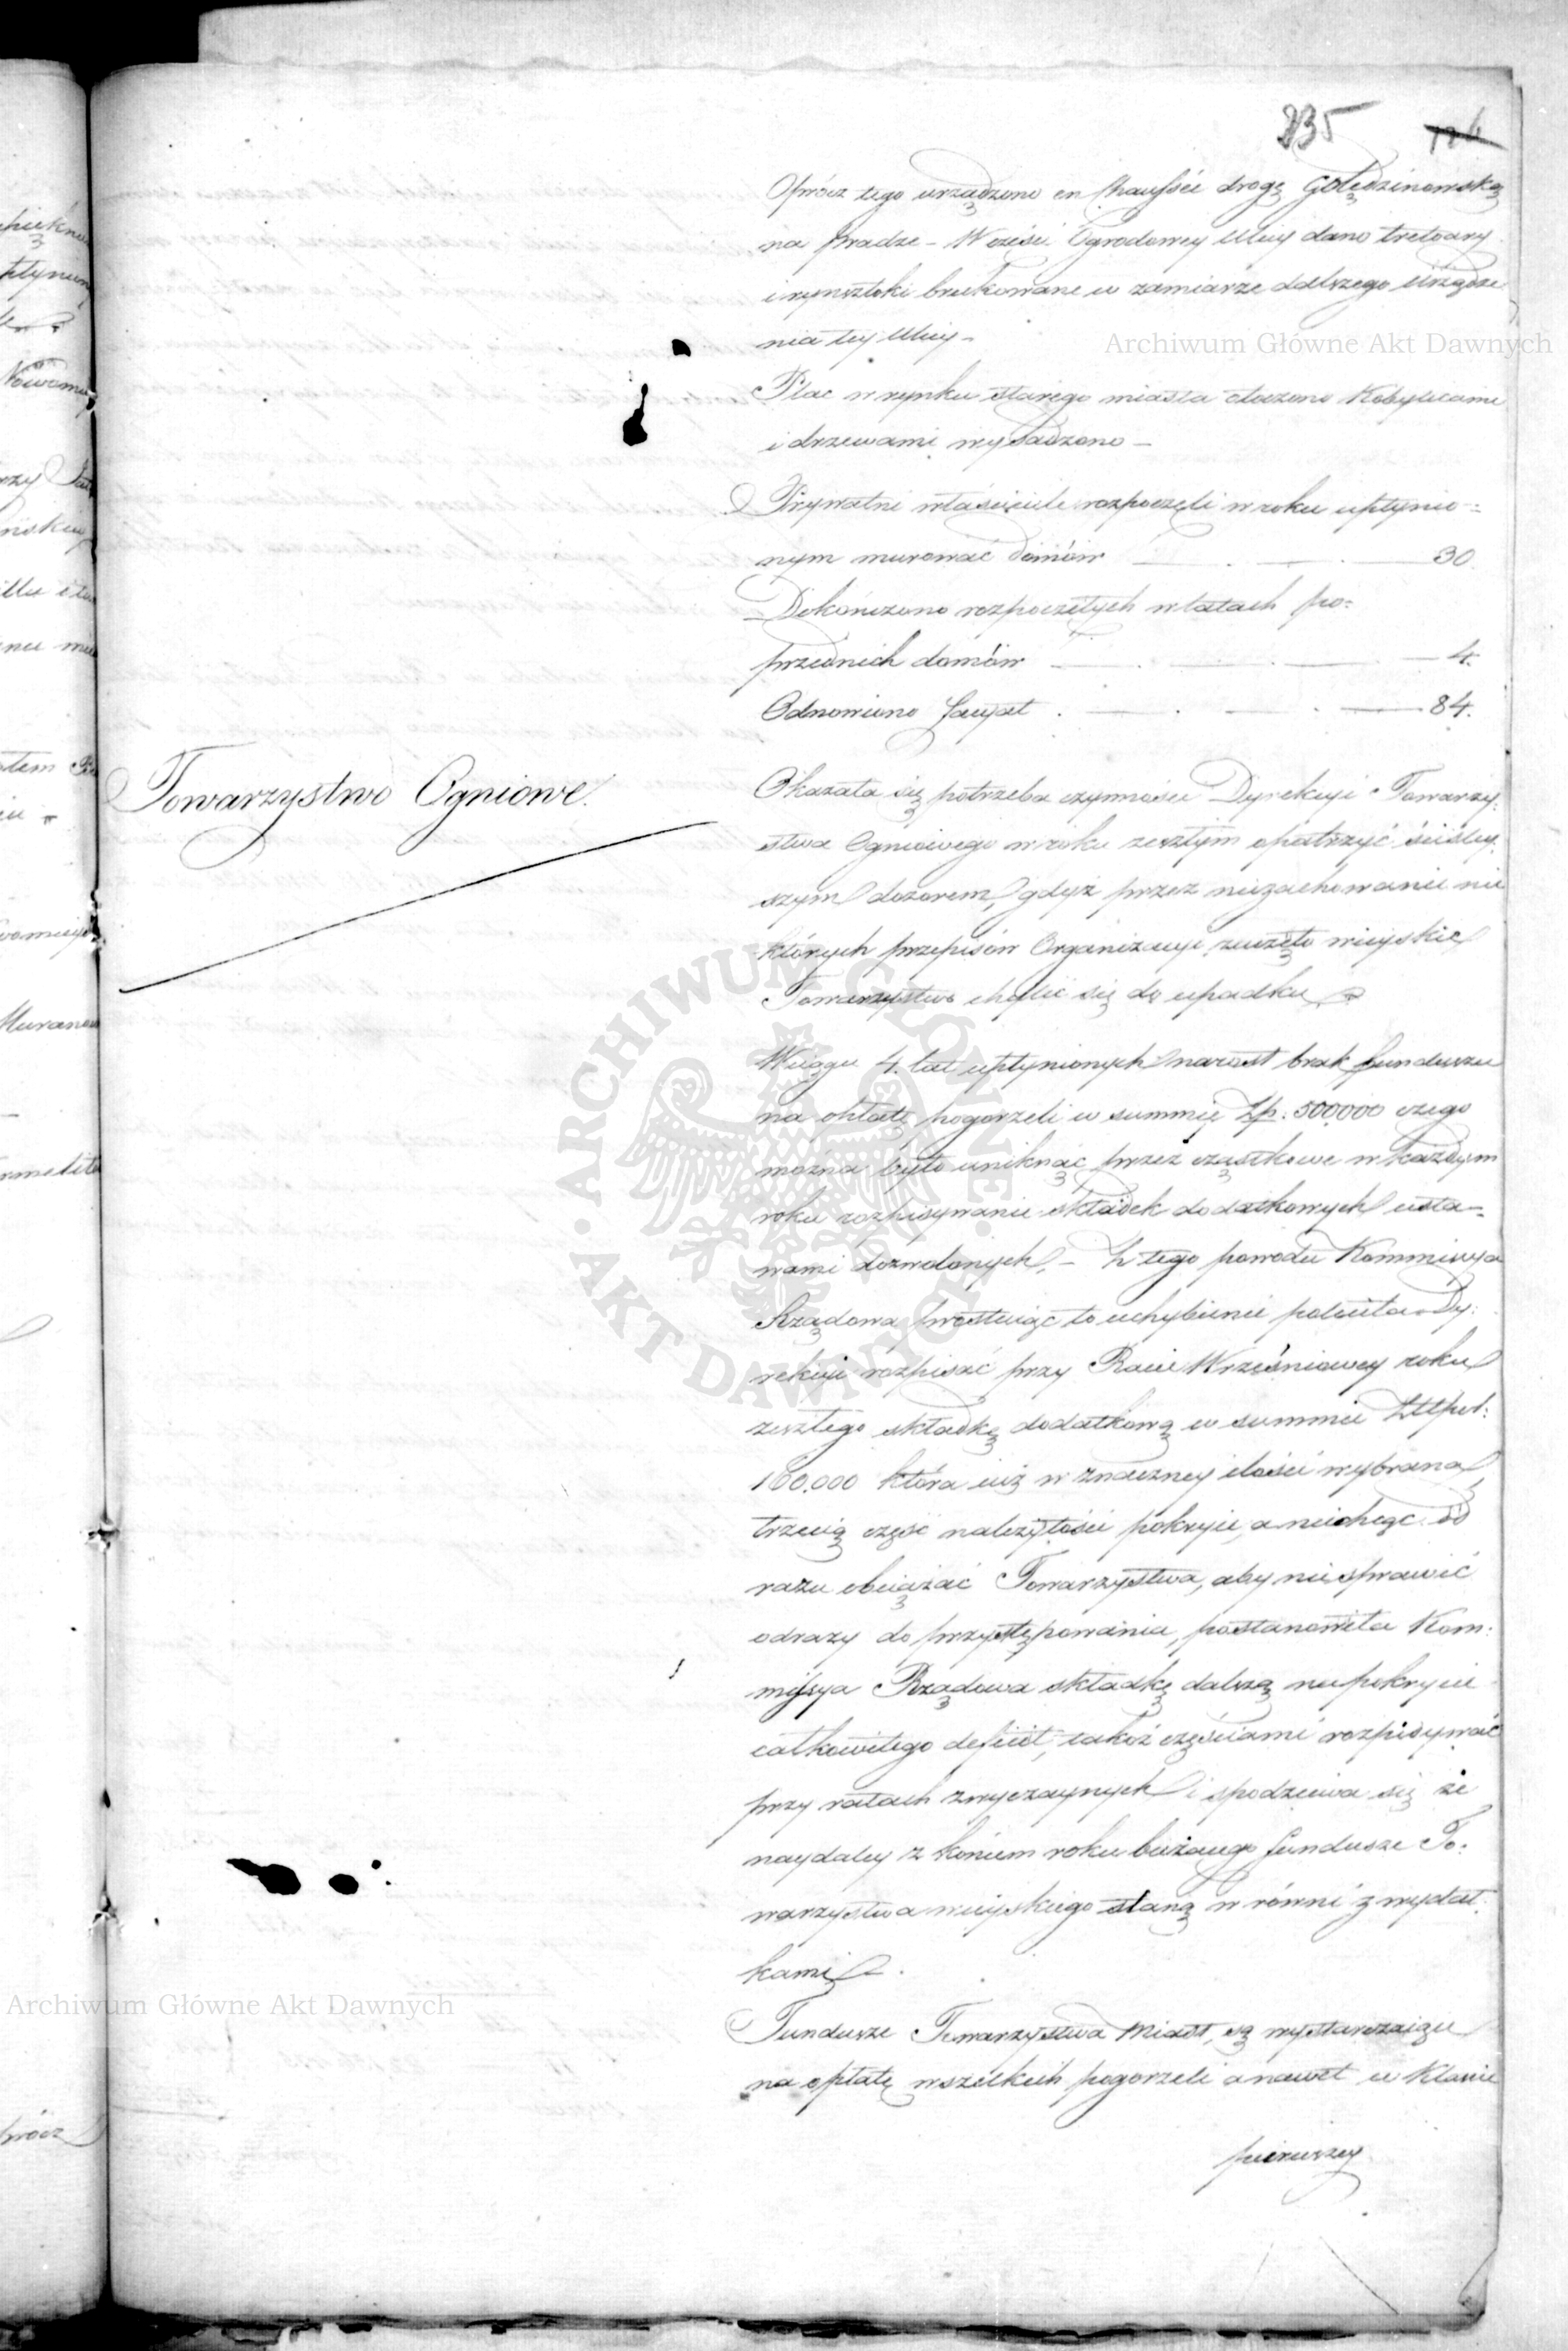 235 126
Oprócz tego urządzono en Chaussée drogę Golędzinowską
na Pradze – W części Ogrodowey Ulicy dano tretoary
i rynsztoki brukowane w zamiarze dalszego urządze
nia tey Ulicy –
Plac w rynku starego miasta otoczono Kobylicami
i drzewami wysadzono –
Prywatni właściciele rozpoczęli w roku upłynio=
nym murować domów 30
Dokończono rozpoczętych w latach po=
przednich domów 4.
Odnowiono facyat 84.
Towarzystwo Ogniowe.
Okazała się potrzeba czynności Dyrekcyi Towarzy:
stwa Ogniowego w roku zeszłym opatrzyć ściśley
szym dozorem, gdyż przez niezachowanie nie
których przepisów Organizacyi zaczęło wieyskie
Towarzystwo chylić się do upadku
W ciągu 4. lat upłynionych narost brak funduszu
na opłatę pogorzeli w summie Zp. 500,000 czego
można było uniknąć przez cząstkowe w każdym
roku rozpisywanie składek dodatkowych usta=
wami dozwolonych. – Z tego powodu Kommissya
Rządowa prostuiąc to uchybienie poleciła Dy:
rekcyi rozpisać przy Racie Wrześniowey roku
zeszłego składkę dodatkową w summie Złlpol:
160.000 która iuż w znaczney ilości wybrana
trzecią część należytości pokryie, a niechcąc od
razu obciążać Towarzystwa, aby nie sprawić
odrazy do przystępowania, postanowiła Kom:
missya Rządowa składkę dalszą na pokrycie
całkowitego deficit, takoż częściami rozpisywać
przy ratach zwyczaynych i spodziewa się że
naydaley z końcem roku bieżącego fundusze To:
warzystwa wieyskiego staną w równi z wydat:
kami.
Fundusze Towarzystwa Miast, są wystarczaiące
na opłatę wszelkich pogorzeli a nawet w Klassie
pierwszey
Archiwum Główne Akt Dawnych
Archiwum Główne Akt Dawnych
ARCHIWUM GŁÓWNE AKT DAWNYCH